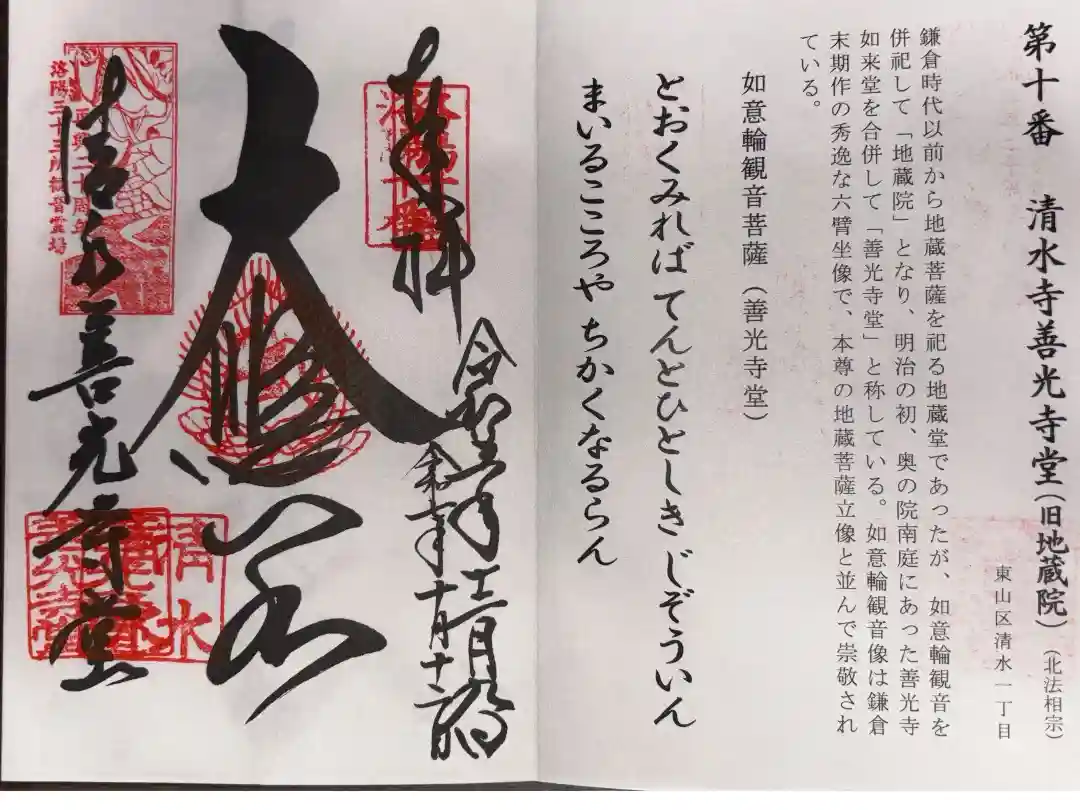 第十番 清水寺善光寺堂(旧地蔵院)(北法相宗)
東山区清水一丁目
鎌倉時代以前から地蔵菩薩を祀る地蔵堂であったが、如意輪観音を
併祀して「地蔵院」となり、明治の初、奥の院南庭にあった善光寺
如来堂を合併して「善光寺堂」と称している。如意輪観音像は鎌倉
末期作の秀逸な六臂坐像で、本尊の地蔵菩薩立像と並んで崇敬され
ている。
如意輪観音菩薩(善光寺堂)
とおくみれば てんとひとしき じぞういん
まいるこころや ちかくなるらん
奉拝
洛陽十番
大悲閣
清水善光寺堂
再興二十周年
洛陽三十三所観音霊場
清水